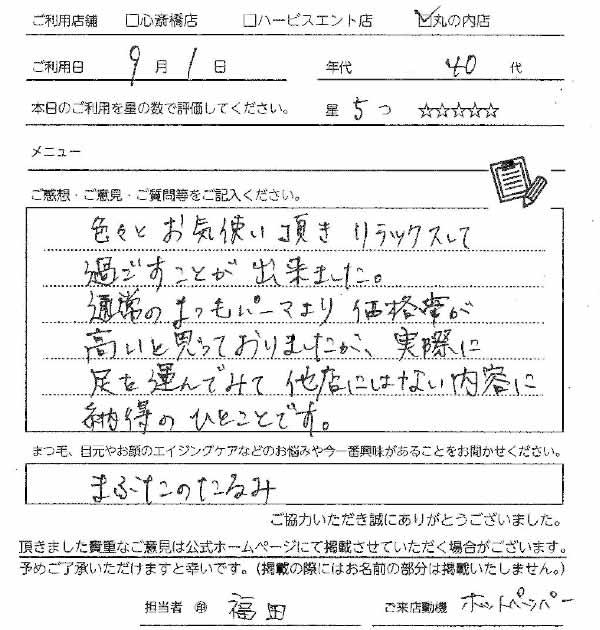 ご利用店舗 □心斎橋店 □ハービスエント店 ☑丸の内店
ご利用日 9月1日 年代 40代
本日のご利用を星の数で評価してください。 星5つ ☆☆☆☆☆
メニュー
ご感想・ご意見・ご質問等をご記入ください。
色々とお気使い頂きリラックスして
過ごすことが出来ました。
通常のまつ毛パーマより価格帯が
高いと思っておりましたが、実際に
足を運んでみて他店にはない内容に
納得のひとことです。
まつ毛、目元やお顔のエイジングケアなどのお悩みや今一番興味があることをお聞かせください。
まぶたのたるみ
ご協力いただき誠にありがとうございました。
頂きました貴重なご意見は公式ホームページにて掲載させていただく場合がございます。
予めご了承いただけますと幸いです。（掲載の際にはお名前の部分は掲載いたしません。）
担当者 ㊞ 福田 ご来店動機 ホットペッパー